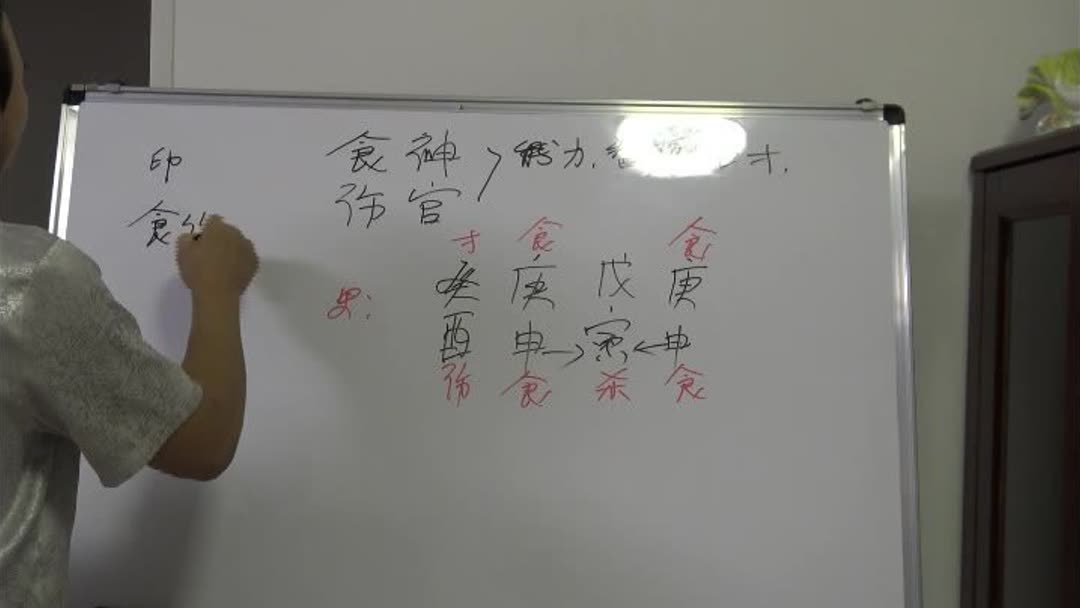 印
食伤
食神 } 能力. 才.
伤官
才 食 食
癸 庚 戊 庚
男:
酉 申→寅←申
伤 食 杀 食